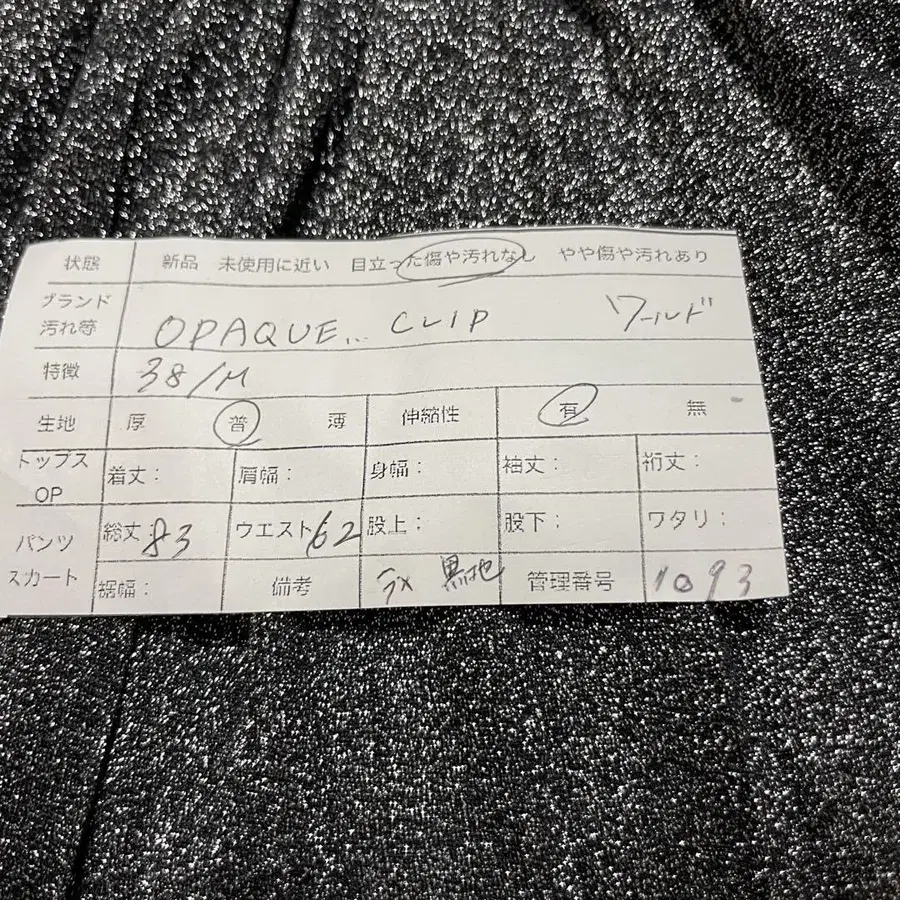 状態 新品 未使用に近い 目立った傷や汚れなし やや傷や汚れあり
ブランド
汚れ等 OPAQUE... CLIP ワールド
特徴 38/M
生地 厚 普 薄 伸縮性 有 無
トップス
OP 着丈: 肩幅: 身幅: 袖丈: 裄丈:
パンツ
スカート 総丈:83 ウエスト:62 股上: 股下: ワタリ:
裾幅: 備考 ラメ 黒地 管理番号 1093